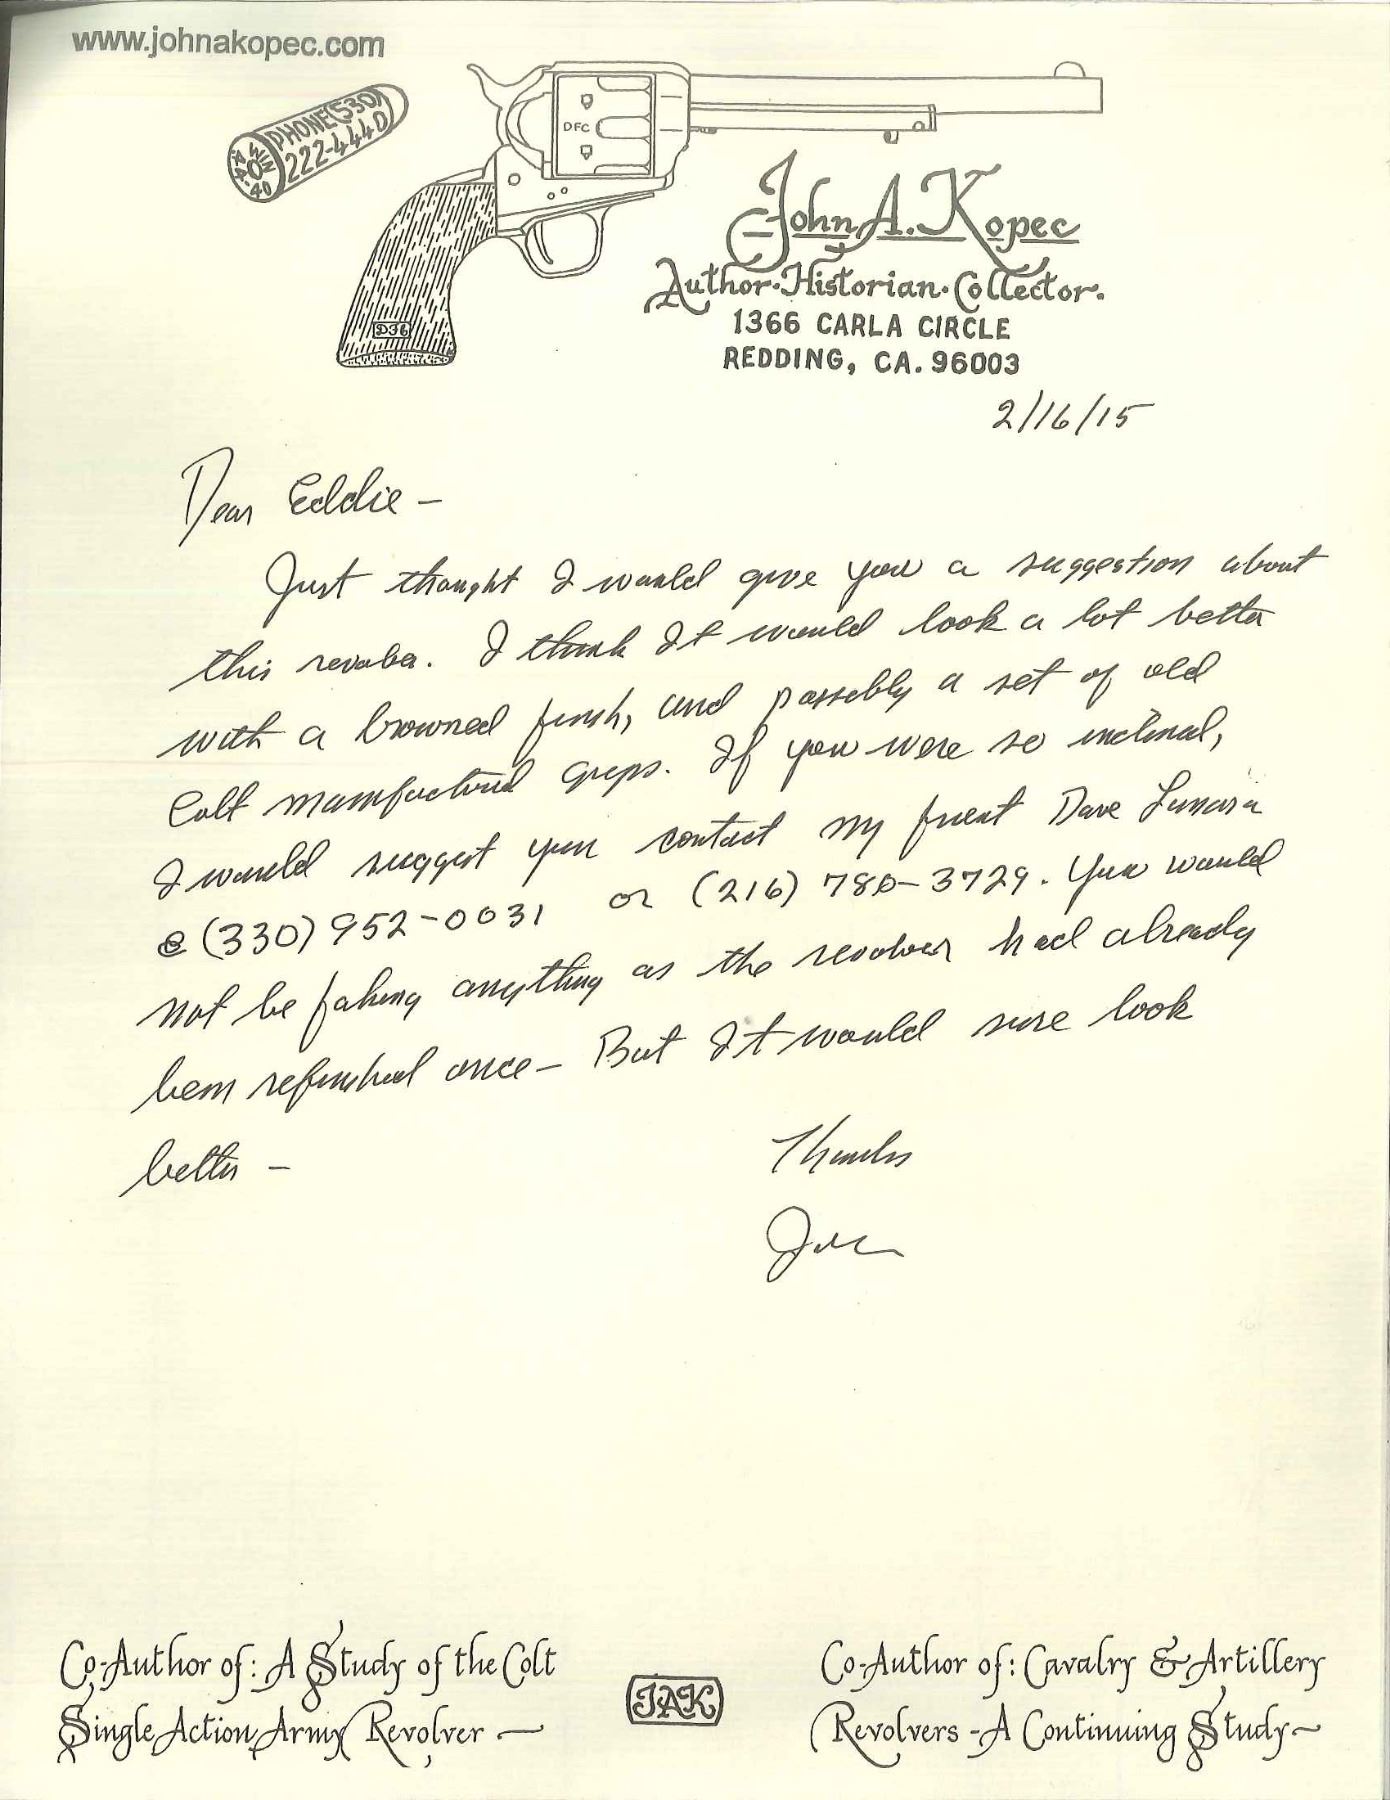 www.johnakopec.com
PHONE (530)
222-4440
WIN
44-40
DFC
D36
John A. Kopec
Author·Historian·Collector.
1366 CARLA CIRCLE
REDDING, CA. 96003
2/16/15
Dear Eddie –
Just thought I would give you a suggestion about
this revolver. I think It would look a lot better
with a browned finish, and possibly a set of old
Colt manufactured grips. If you were so inclined,
I would suggest you contact my friend Dave Lanara
@ (330) 952-0031 or (216) 780-3729. You would
not be faking anything as the revolver had already
been refinished once – But It would sure look
better –
Thanks
John
Co-Author of: A Study of the Colt
Single Action Army Revolver –
JAK
Co-Author of: Cavalry & Artillery
Revolvers - A Continuing Study ~